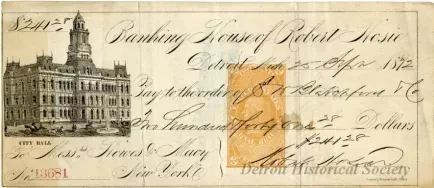 $241 28
Banking House of Robert Hosie
Detroit Mich 25 Apr 1872
Pay to the order of E W Blatchford & Co
Two Hundred forty One 28 Dollars
$241 28
CITY HALL
To Messrs Howes & Macy
New York
No. 13681
Detroit Historical Society